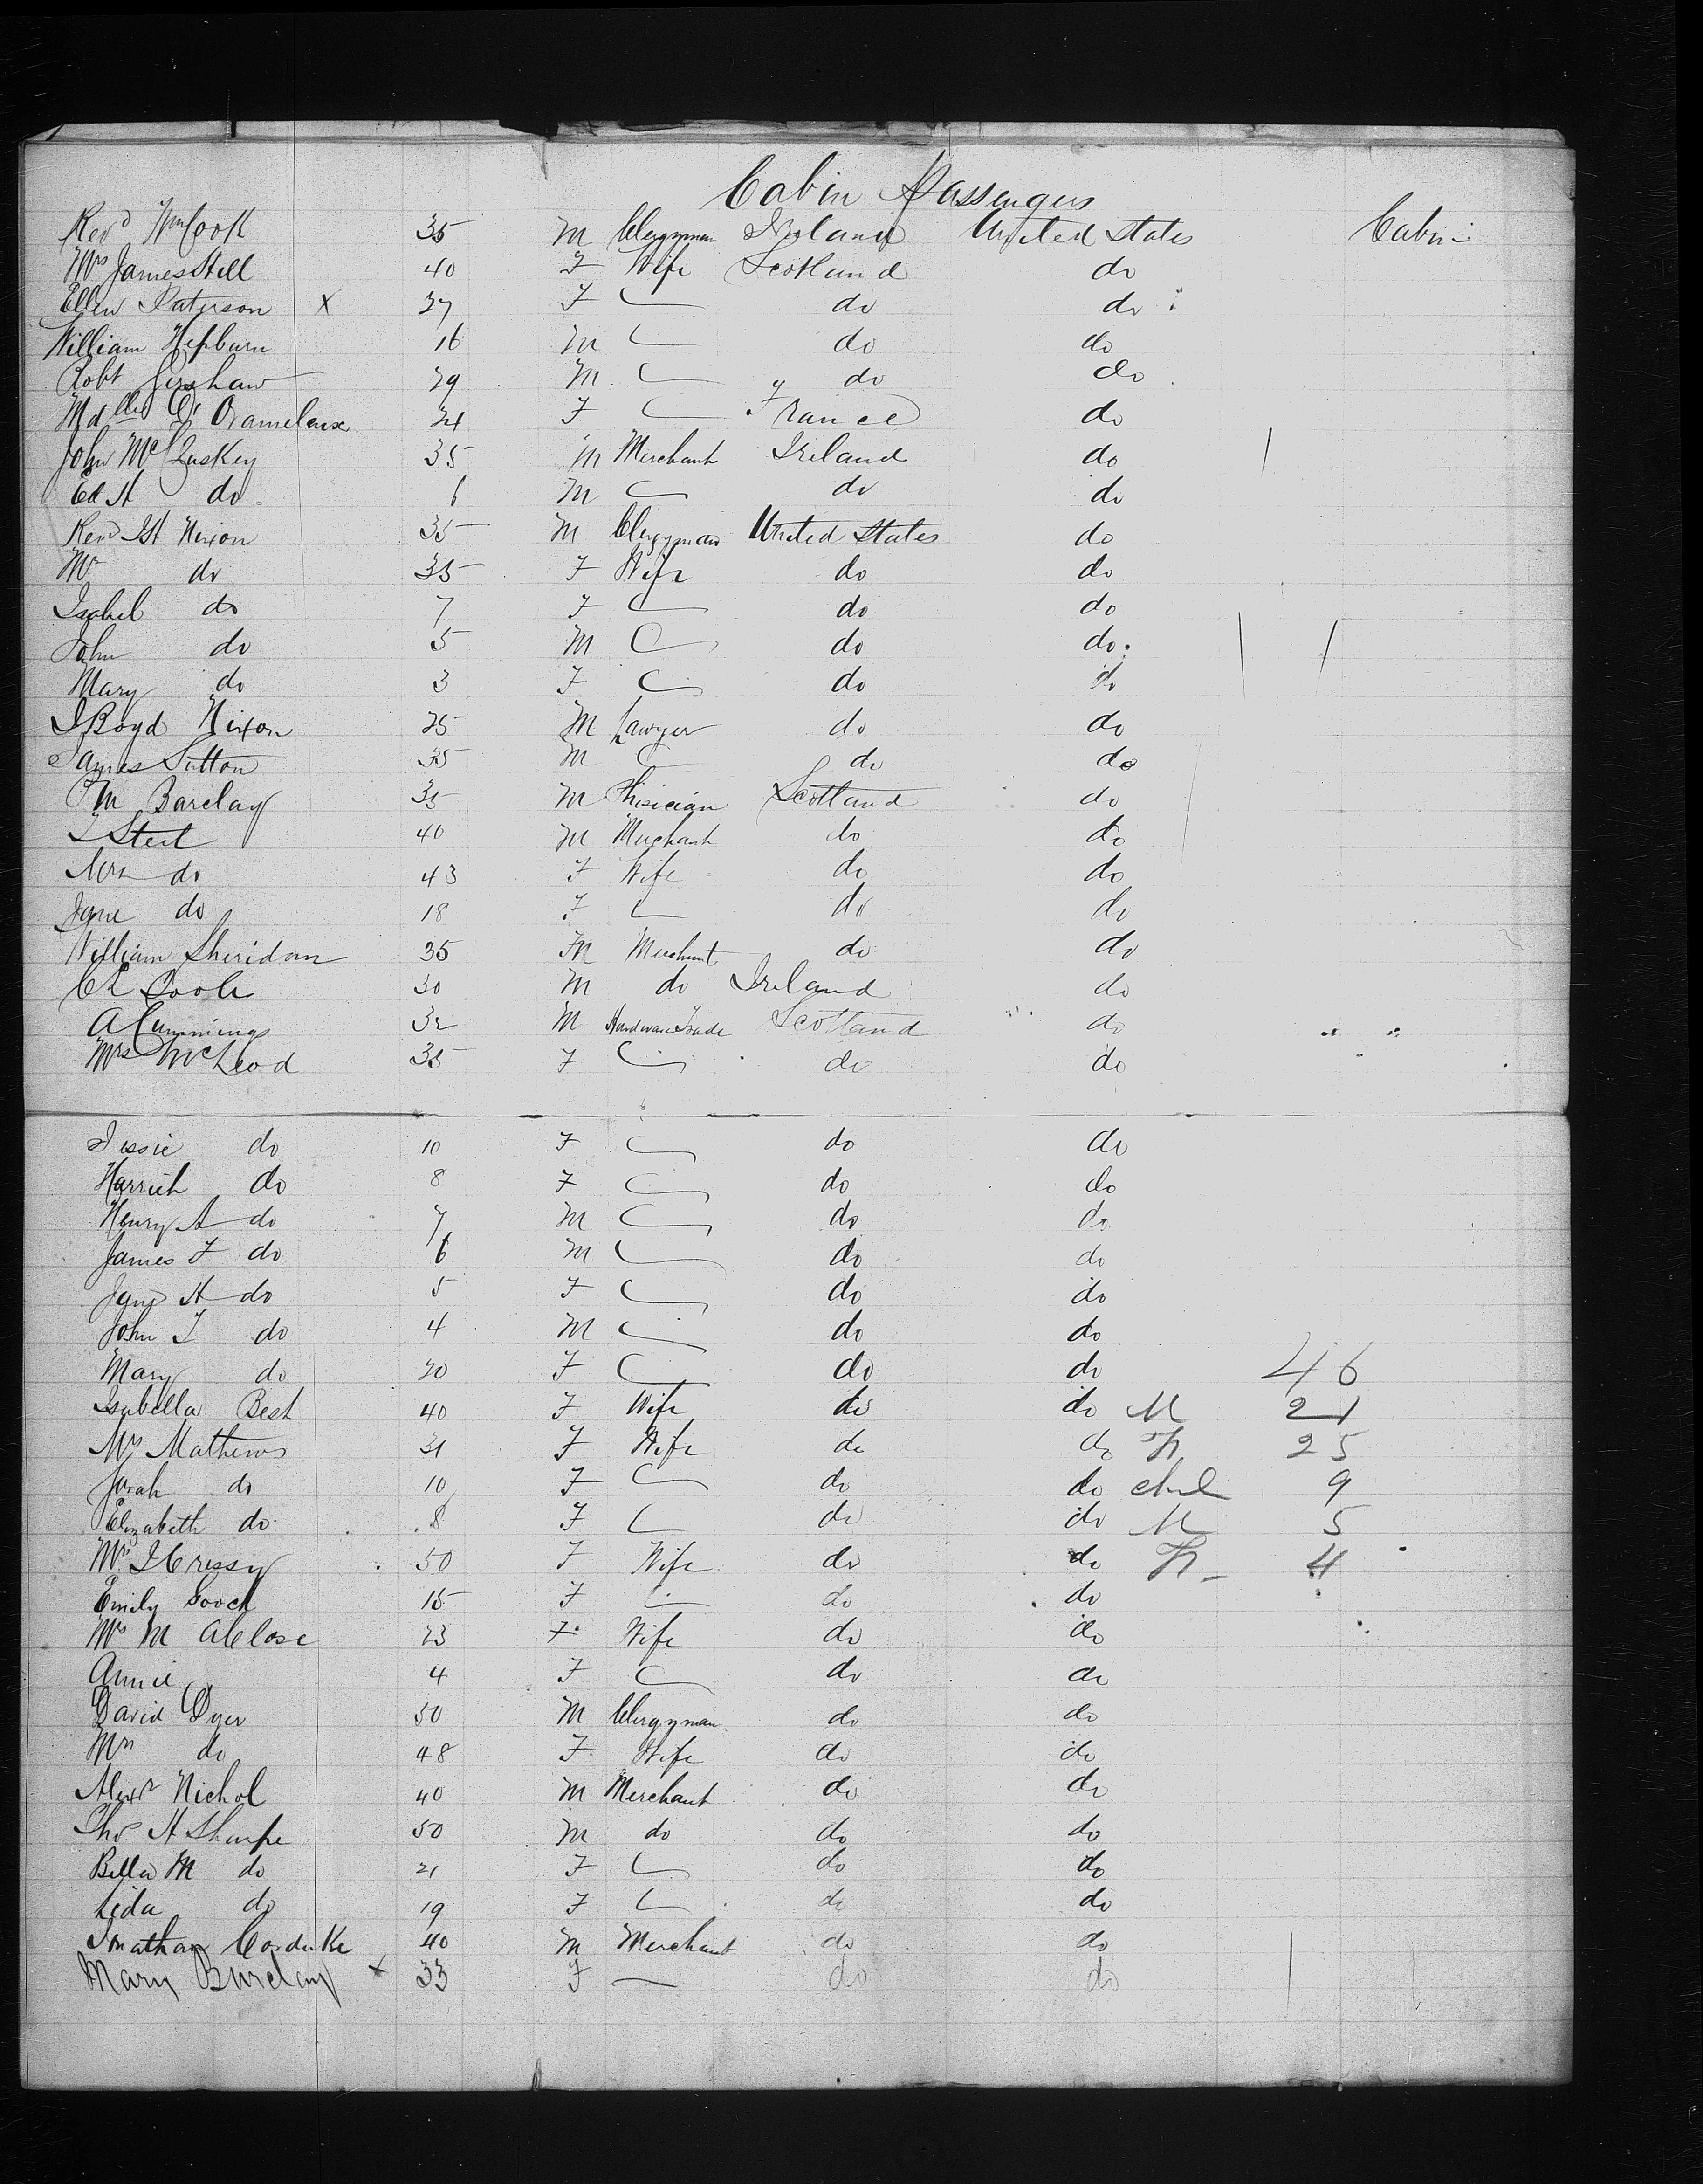 Cabin Passengers
Revd Wm Cook 35 M Clergyman Ireland United States Cabin
Mrs James Still 40 F Wife Scotland do
Ellen Paterson x 37 F do do
William Hepburn 16 M do do
Robt Gershaw 29 M do do
Mdlle 24 F France do
John McCluskey 35 M Merchant Ireland do
Ed A do 6 M do do
Revd Nixon 35 M Clergyman United States do
Mrs do 35 F Wife do do
Isabel do 7 F do do
John do 5 M do do
Mary do 3 F do do
J Boyd Nixon 25 M Lawyer do do
James Sutton 35 M do do
Wm Barclay 35 M Phisician Scotland do
Steel 40 M Merchant do do
Mrs do 43 F Wife do do
Jane do 18 F do do
William Sheridan 35 M Merchant do do
30 M do Ireland do
A Cummings 32 M Hardware Trade Scotland do
Mrs McLeod 35 F do do
Jessie do 10 F do do
Harriet do 8 F do do
Henry A do 7 M do do
James F do 6 M do do
Jane H do 5 F do do
John T do 4 M do do
Mary do 20 F do do 46
Isabella Best 40 F Wife do do M 21
Mrs Mathews 31 F Wife do do F 25
Sarah do 10 F do do chil 9
Elizabeth do 8 F do do M 5
Mrs J Cressy 50 F Wife do do F 4
Emily Gooch 15 F do do
Mrs M A Close 23 F Wife do do
Annie 4 F do do
David Dyer 50 M Clergyman do do
Mrs do 48 F Wife do do
Alexr Nichol 40 M Merchant do do
Thos H Sharpe 50 M do do do
Bella M do 21 F do do
Lida do 19 F do do
Jonathan 40 M Merchant do do
Mary Barclay x 33 F — do do